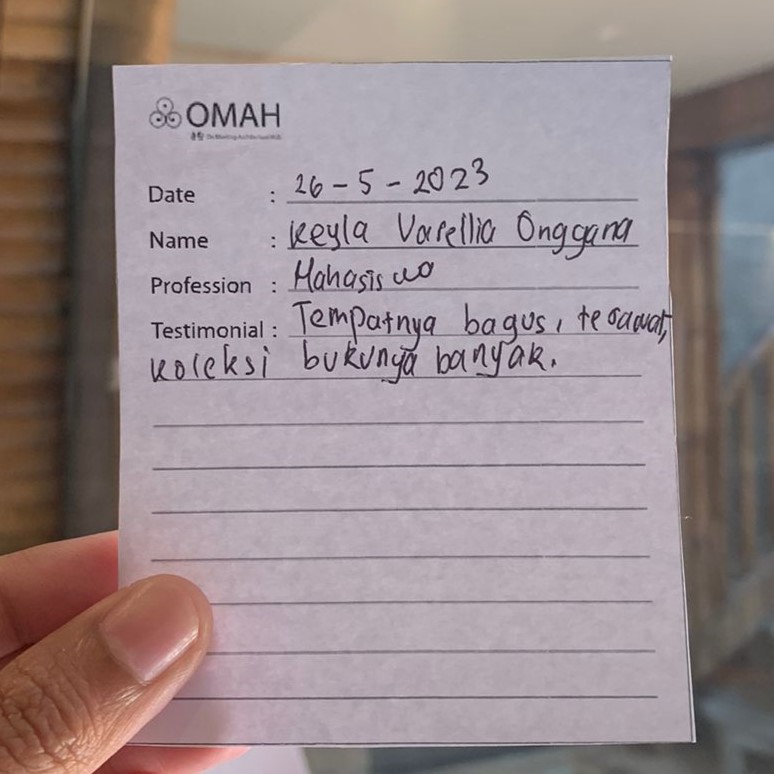 OMAH
Date : 26-5-2023
Name : Keyla Varellia Onggana
Profession : Mahasiswa
Testimonial : Tempatnya bagus, terawat,
koleksi bukunya banyak.